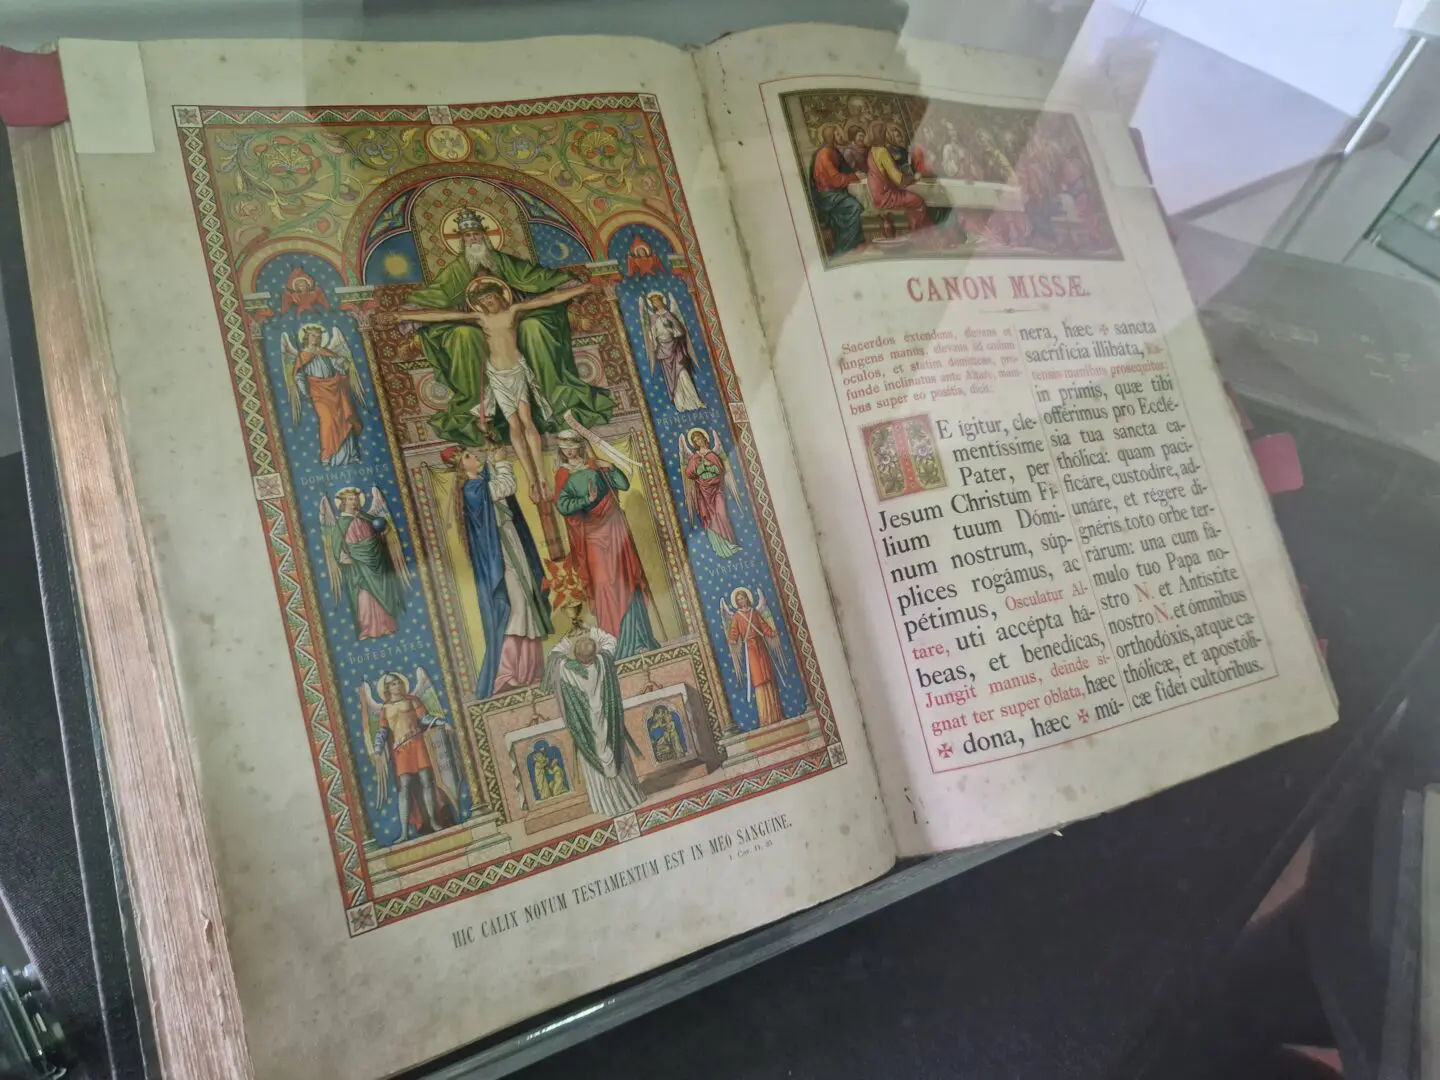 DOMINATIONES
POTESTATES
PRINCIPATUS
VIRTVTES
HIC CALIX NOVUM TESTAMENTUM EST IN MEO SANGUINE.
I. Cor. 11, 25.
CANON MISSÆ.
Sacerdos exténdens, élevans et
jungens manus, élevans ad cœlum
oculos, et statim demíttens, pro-
funde inclinatus ante Altare, mani-
bus super eo pósitis, dicit:
TE igitur, cle-
mentíssime
Pater, per
Jesum Christum Fí-
lium tuum Dómi-
num nostrum, súp-
plices rogámus, ac
pétimus, Osculatur Al-
tare, uti accépta há-
beas, et benedícas,
Jungit manus, deinde si-
gnat ter super oblata, hæc
✠ dona, hæc ✠ mú-
nera, hæc ✠ sancta
sacrifícia illibáta, Ex-
tensis manibus proséquitur:
in primis, quæ tibi
offérimus pro Ecclé-
sia tua sancta ca-
thólica: quam paci-
ficáre, custodíre, ad-
unáre, et régere di-
gnéris toto orbe ter-
rárum: una cum fá-
mulo tuo Papa no-
stro N. et Antístite
nostro N. et ómnibus
orthodóxis, atque ca-
thólicæ, et apostóli-
cæ fidei cultóribus.